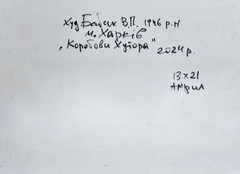 худ Бабак В.П. 1946 р.н
м. Харків
„Коробови Хутора"
2024 р.
13х21
Акрил